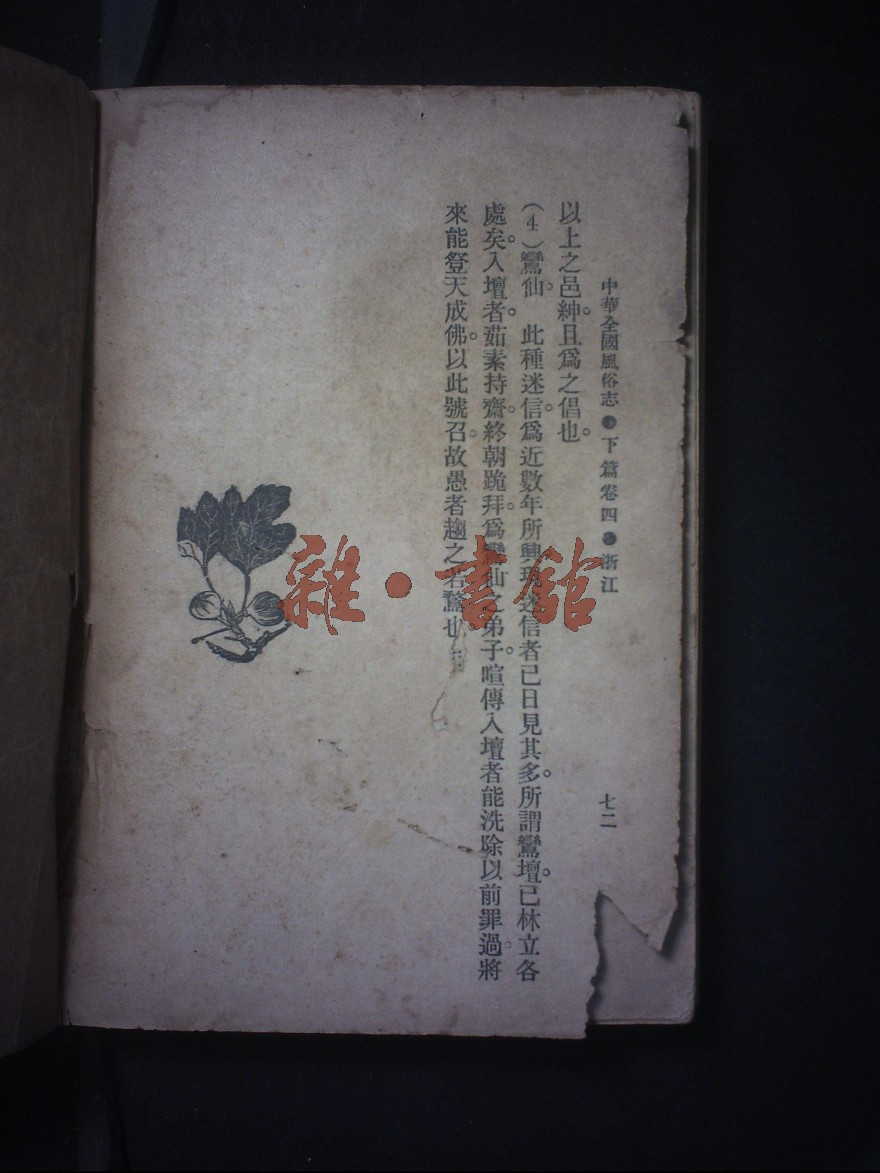 中華全國風俗志●下篇卷四●浙江
七二
以上之邑紳。且爲之倡也。
(4)鸞仙。 此種迷信。爲近數年所興。迷信者已日見其多。所謂鸞壇。已林立各
處矣。入壇者。茹素持齋。終朝跪拜。爲鸞仙之弟子。喧傳入壇者能洗除以前罪過。將
來能登天成佛。以此號召。故愚者趨之若鶩也。
雜·書館